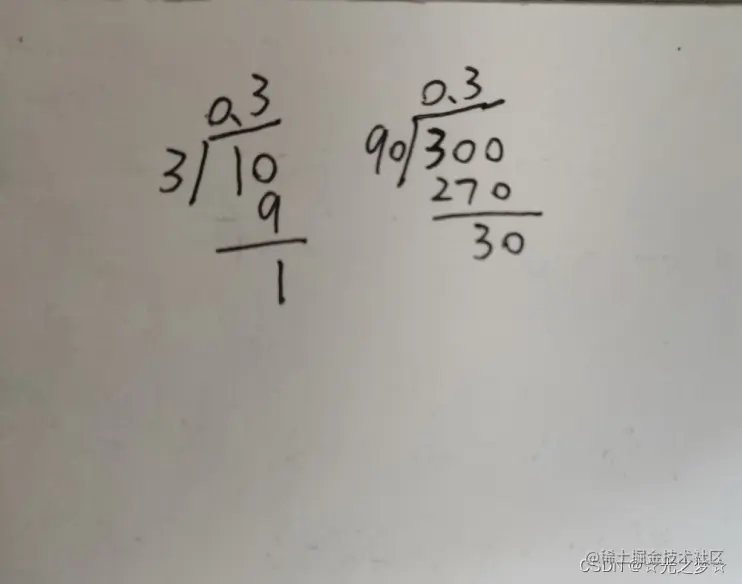 0.3
3/10
9
1
0.3
90/300
270
30
@稀土掘金技术社区
CSDN @☆光之梦☆